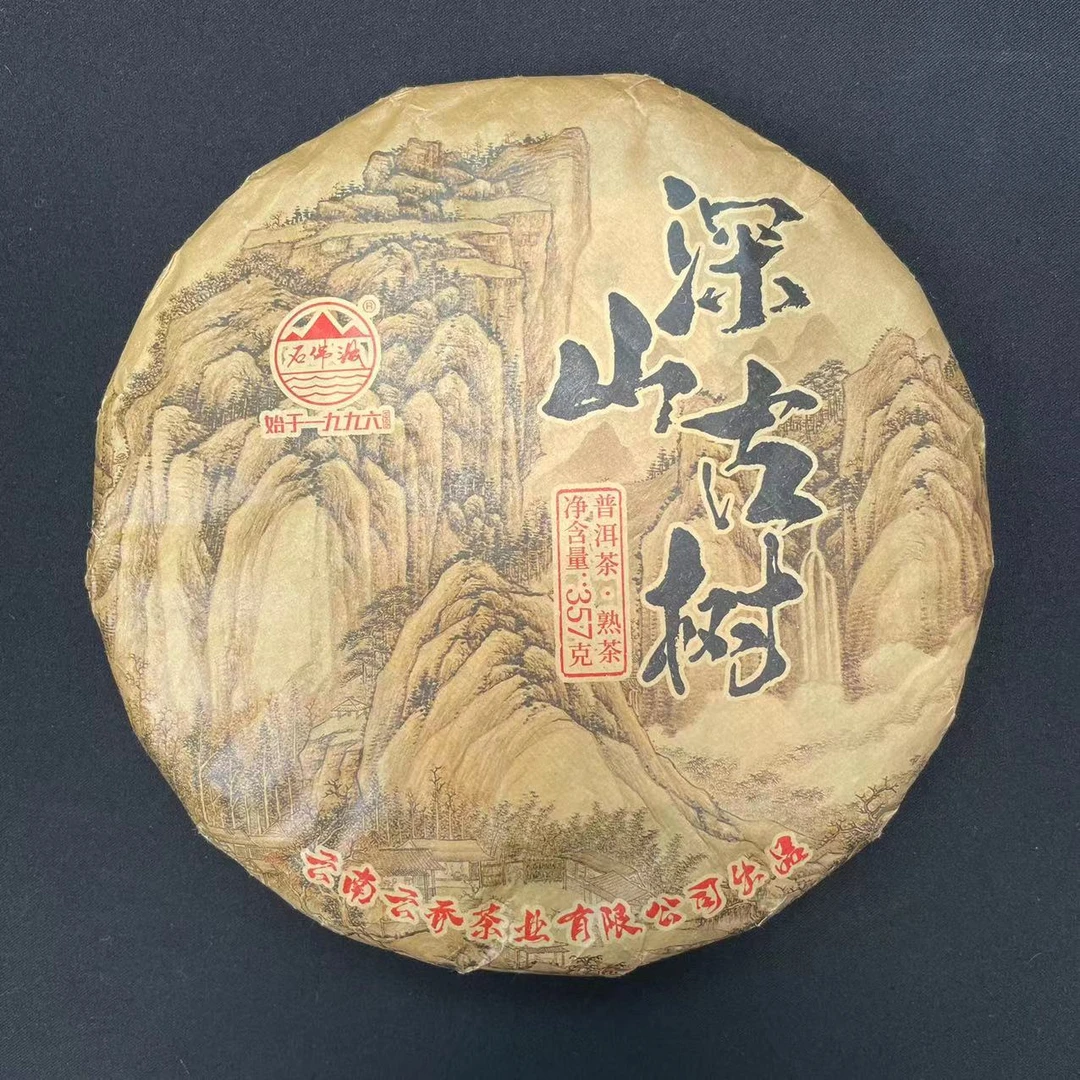 深山古树
®
石佛海
始于一九九六
普洱茶·熟茶
净含量:357克
云南云 茶业有限公司出品